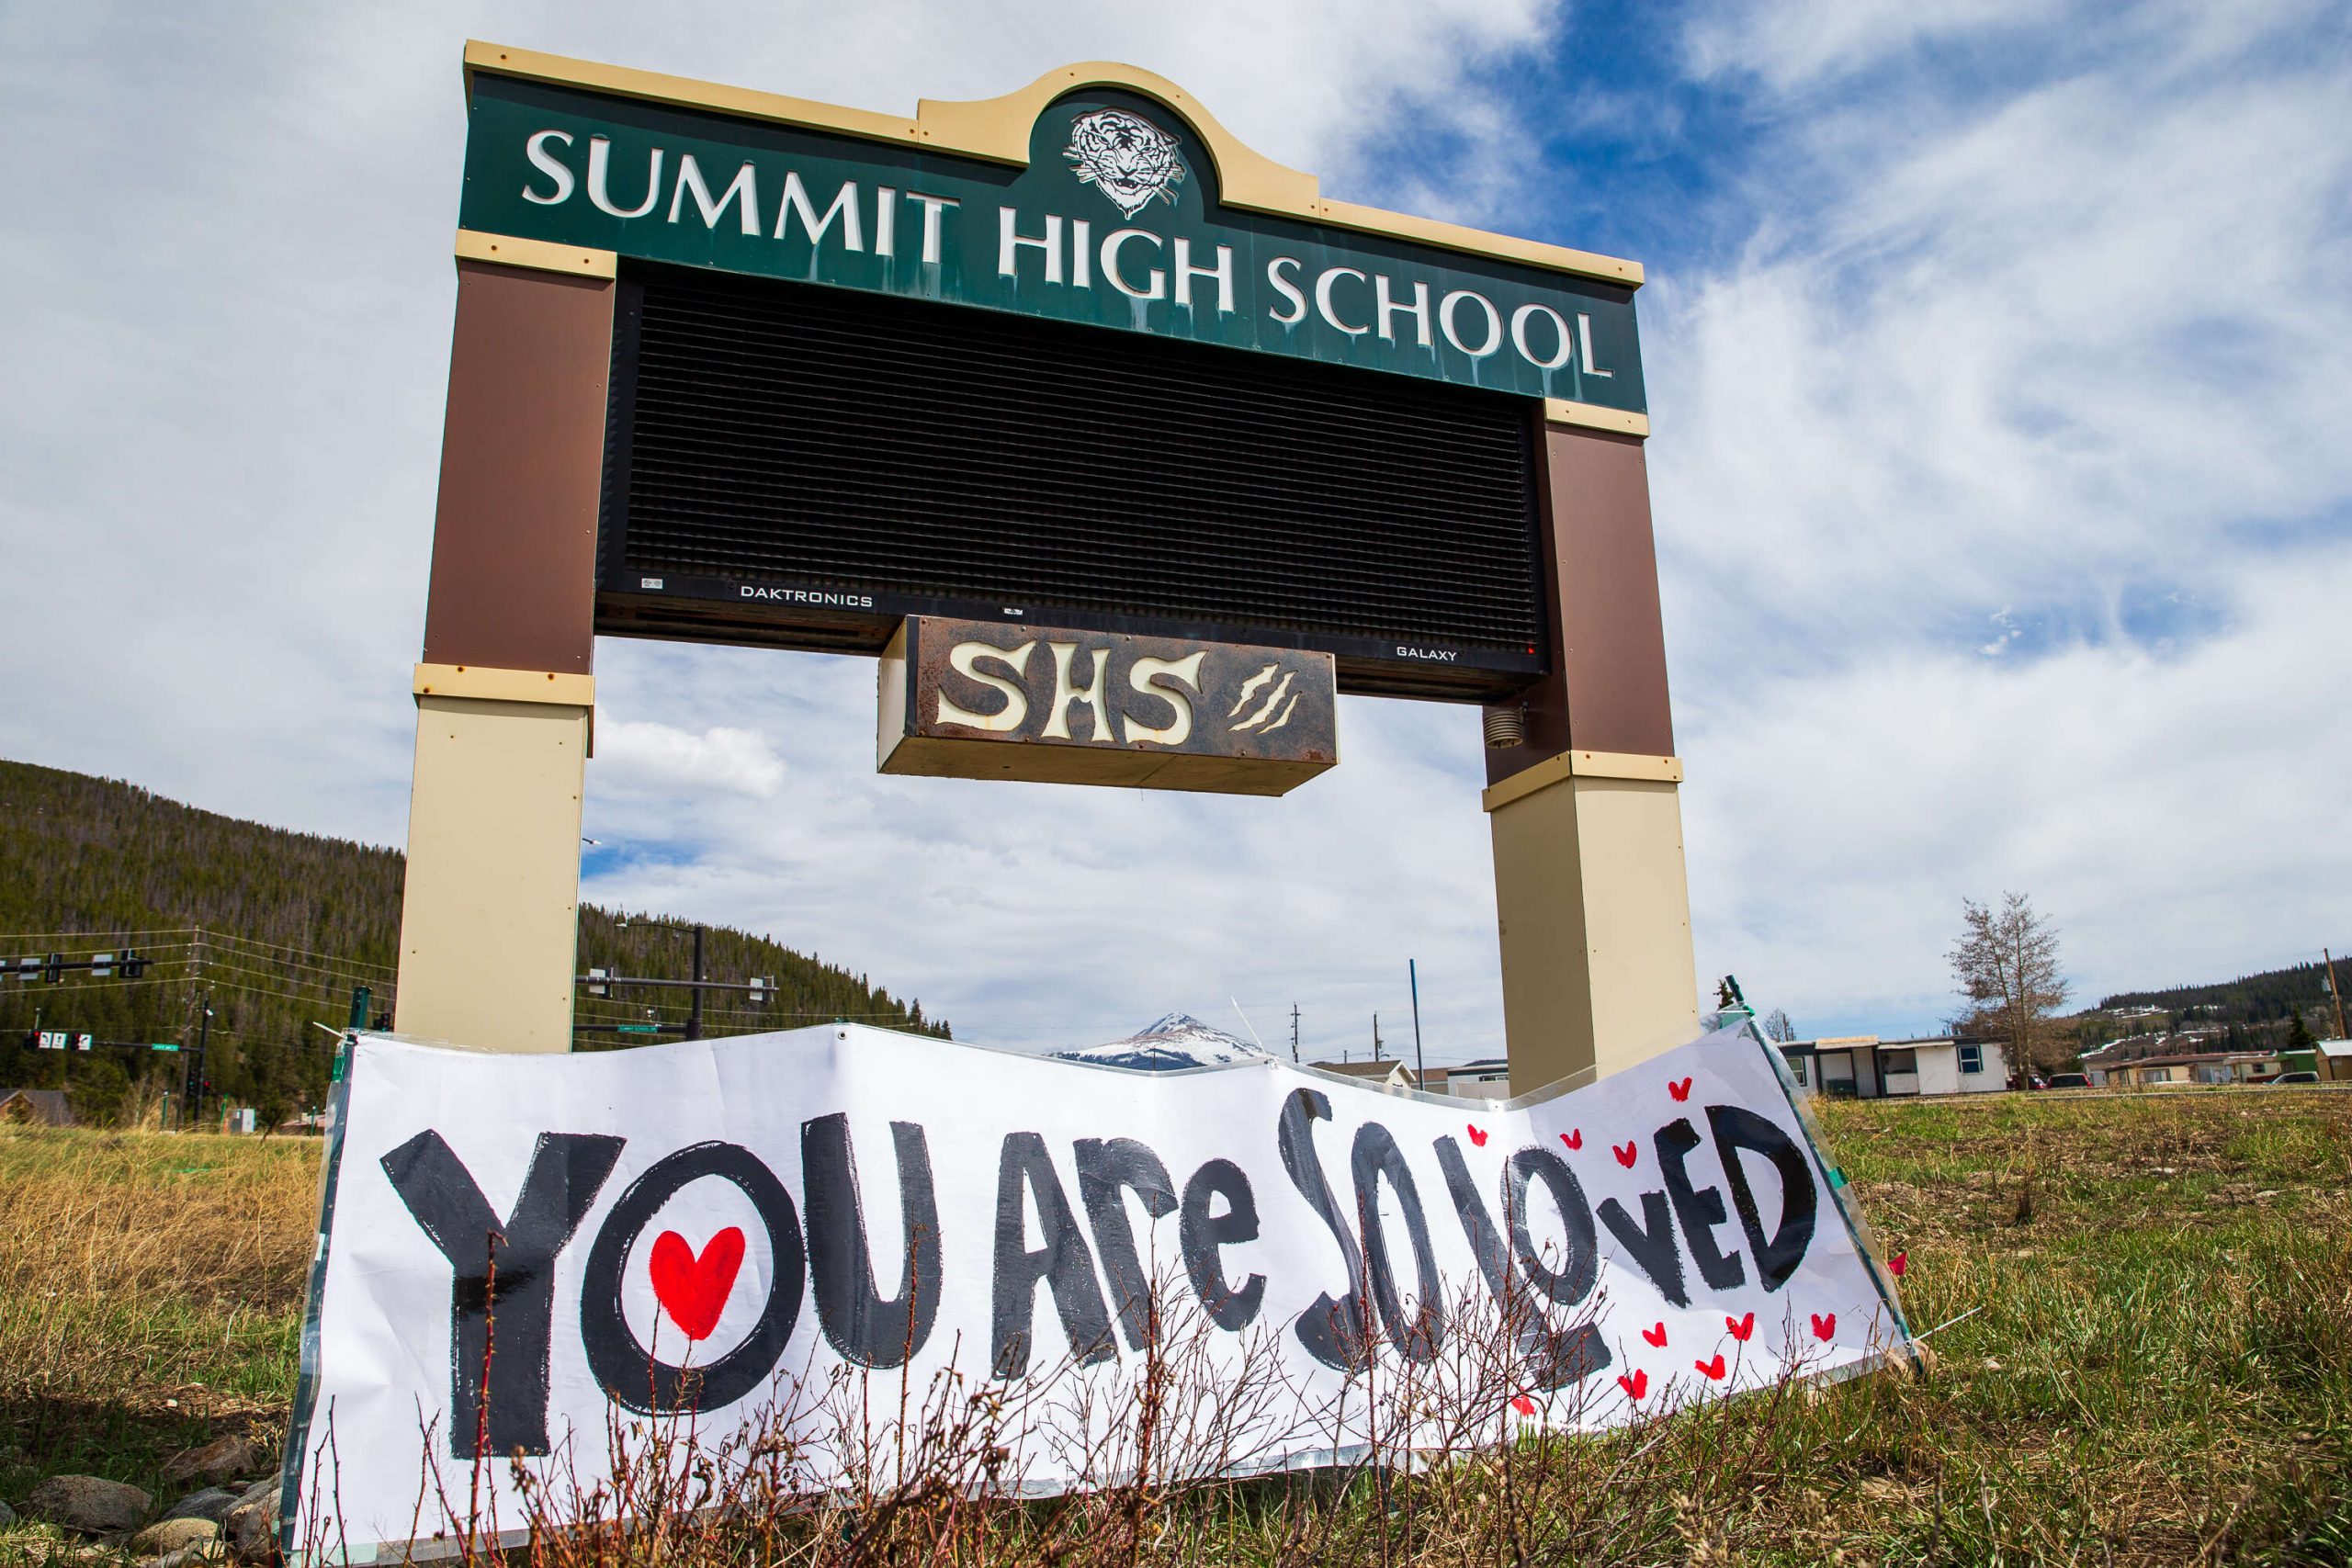 SUMMIT HIGH SCHOOL
DAKTRONICS
GALAXY
SHS
YOU Are So loVED